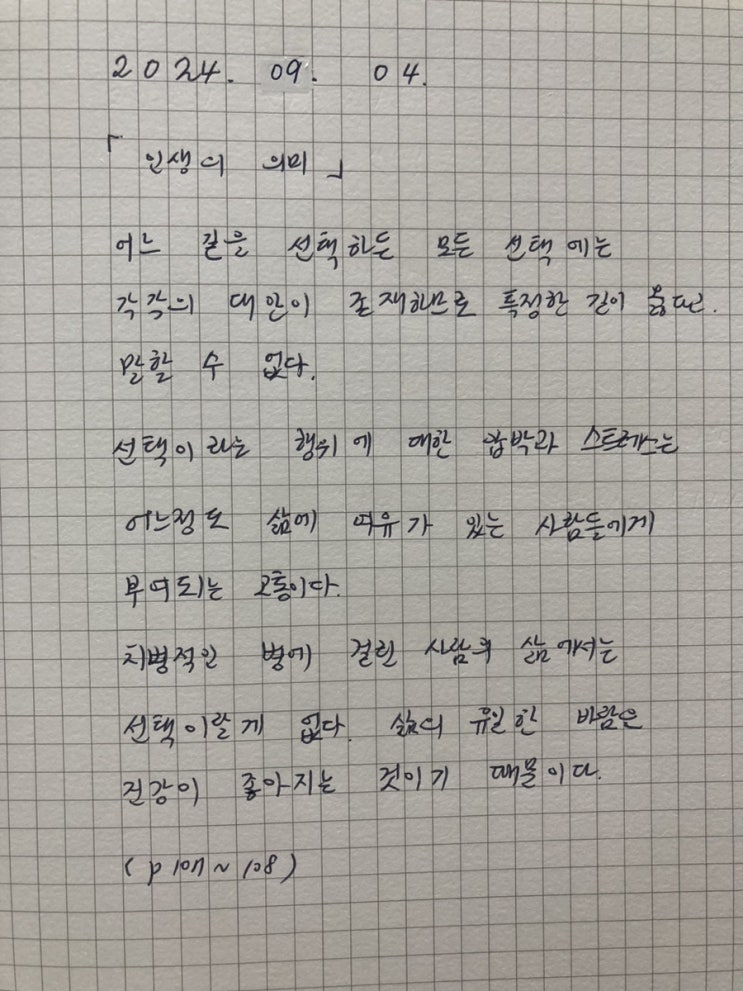 2024. 09. 04.
「인생의 의미」
어느 길을 선택하든 모든 선택에는
각각의 대안이 존재하므로 특정한 길이 옳다고.
말할 수 없다.
선택이라는 행위에 대한 압박과 스트레스는
어느정도 삶에 여유가 있는 사람들에게
부여되는 고통이다.
치명적인 병에 걸린 사람의 삶에서는
선택이랄게 없다. 삶의 유일한 바람은
건강이 좋아지는 것이기 때문이다.
(p 107 ~ 108)